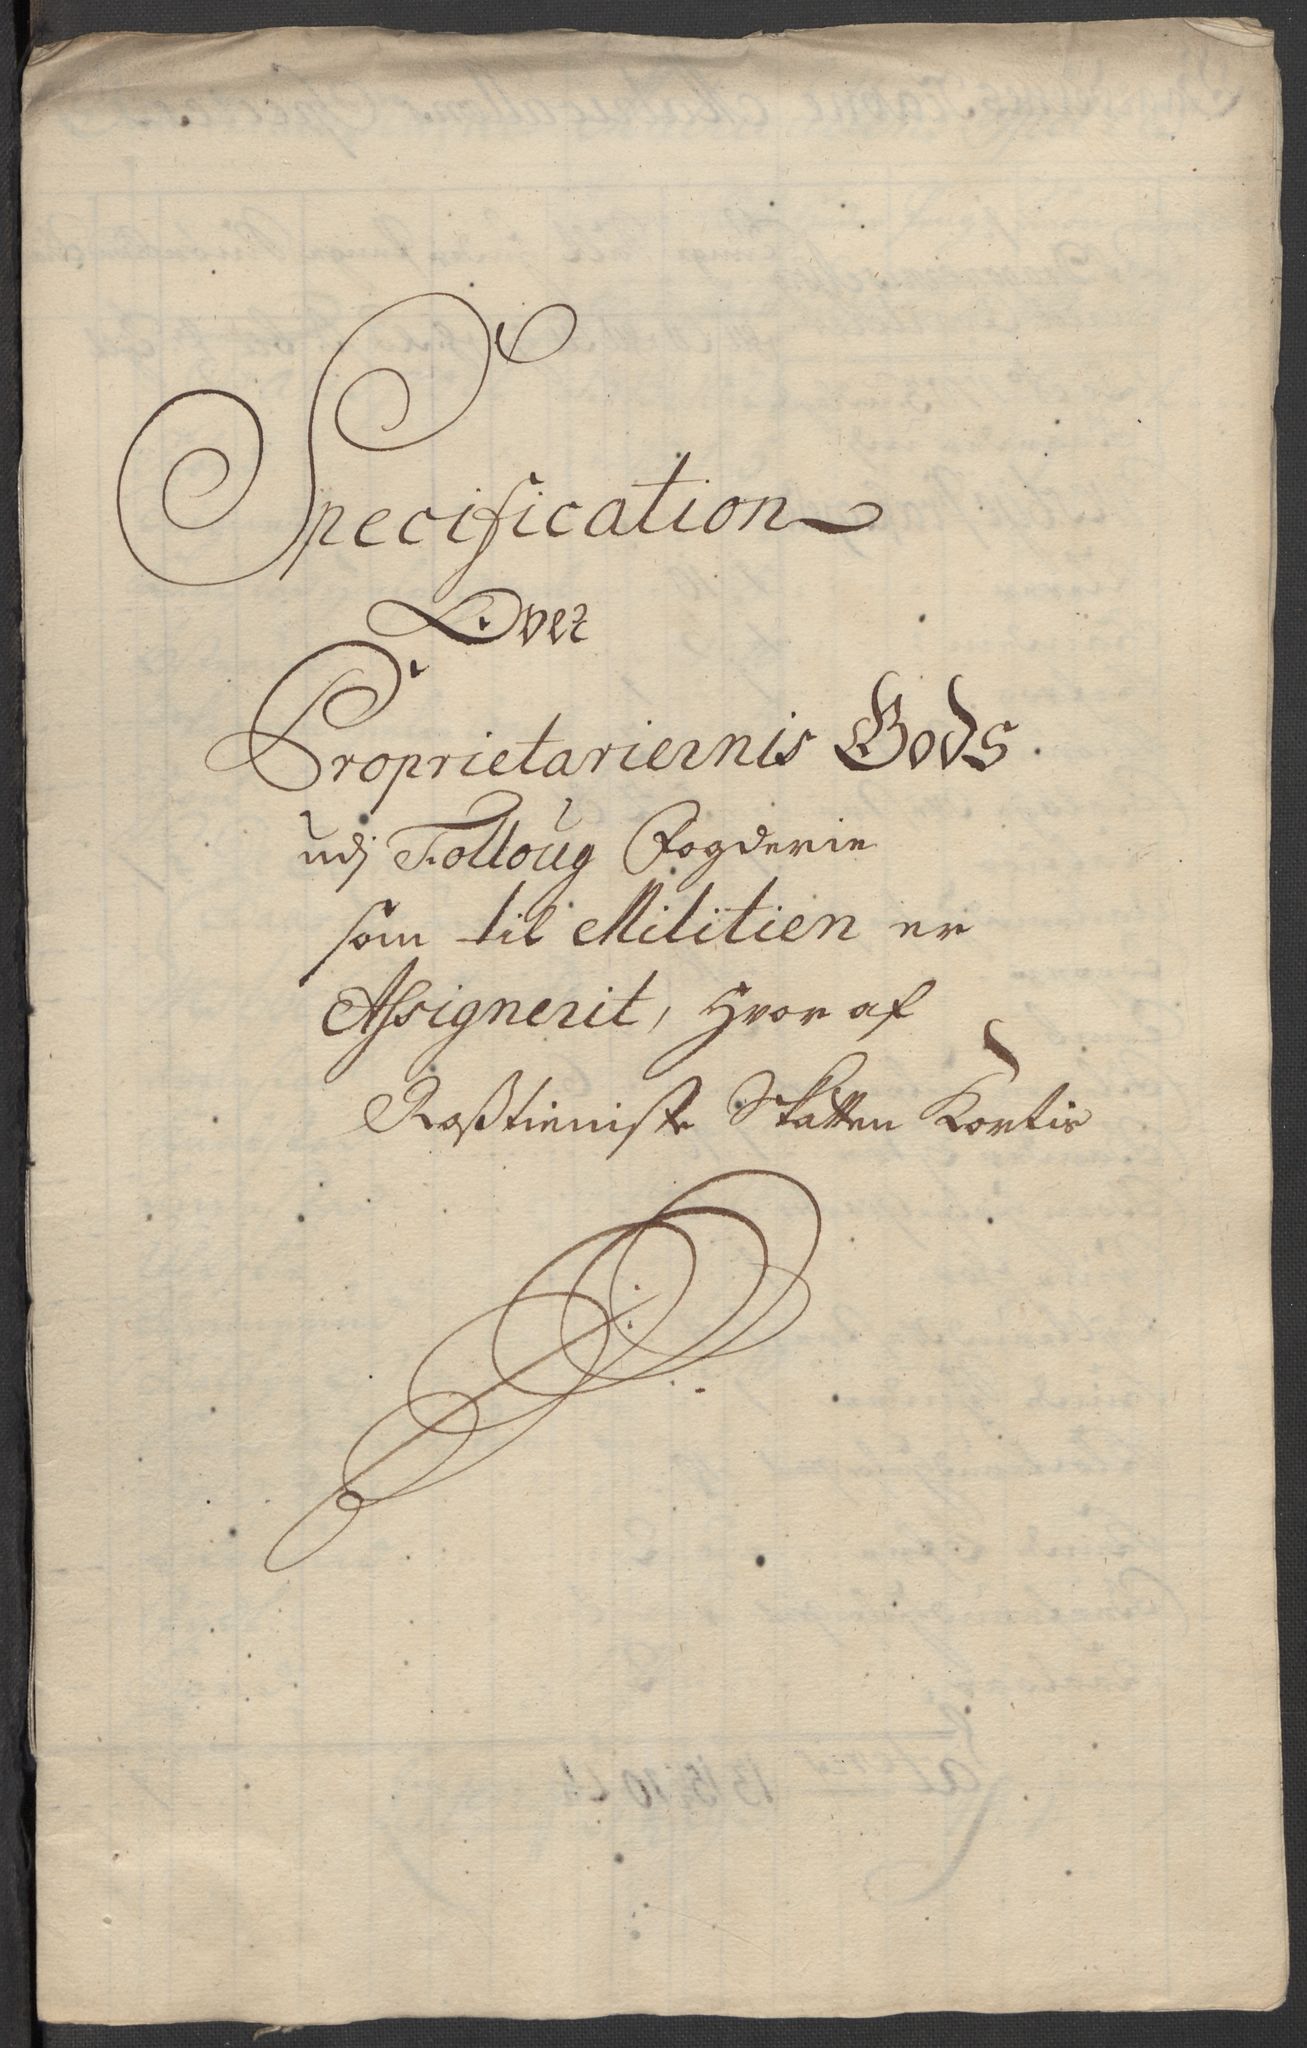 Specification
Over
Proprietariernis Gods
udj Folloug Fogderie
som til Militien er
Assignerit, Hvor af
Roßtieniste Skatten Kortis